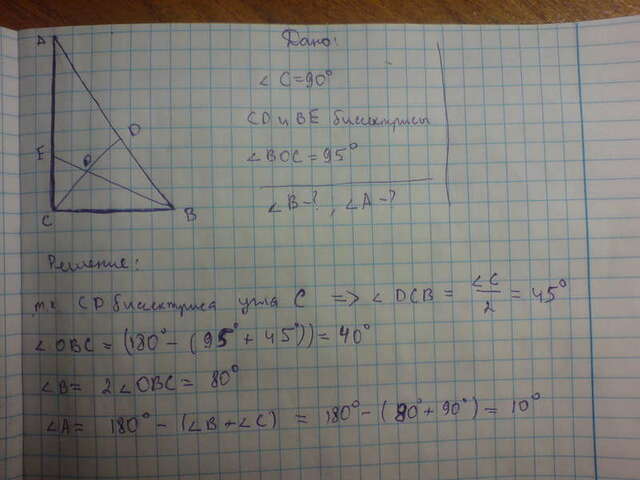 A
D
E
O
C
B
Дано:
∠ C=90°
CD и BE биссектрисы
∠BOC = 95°
∠B-? , ∠A-?
Решение:
т.к CD биссектриса угла C => ∠ DCB = ∠C/2 = 45°
∠OBC = (180° - (95° + 45°)) = 40°
∠B= 2∠OBC = 80°
∠A= 180° - (∠B+∠C) = 180° - (80°+90°) = 10°